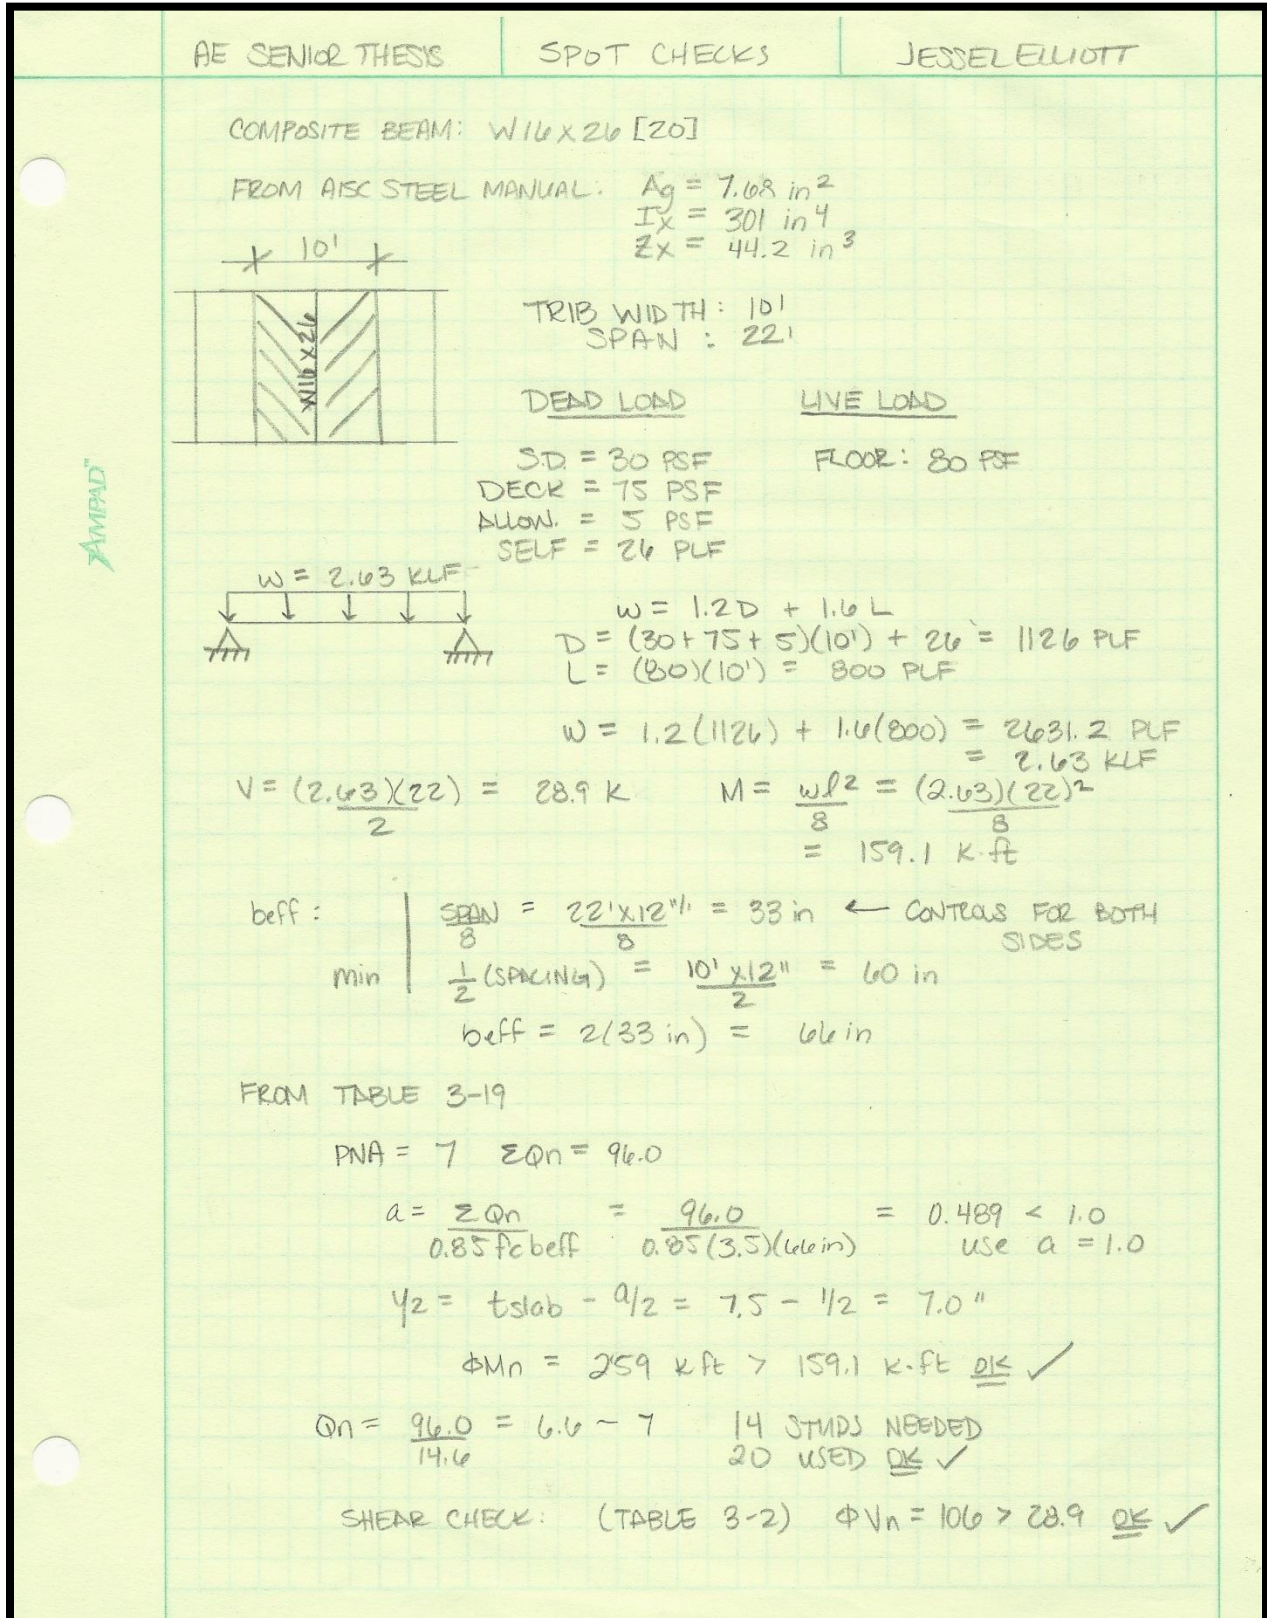 AE SENIOR THESIS SPOT CHECKS JESSEL ELLIOTT
COMPOSITE BEAM: W16x26 [20]
FROM AISC STEEL MANUAL: Ag = 7.68 in²
Ix = 301 in⁴
Zx = 44.2 in³
10'
W16x26
TRIB WIDTH: 10'
SPAN : 22'
DEAD LOAD LIVE LOAD
S.D. = 30 PSF FLOOR: 80 PSF
DECK = 75 PSF
ALLOW. = 5 PSF
SELF = 26 PLF
AMPAD™
w = 2.63 KLF
w = 1.2D + 1.6L
D = (30+75+5)(10') + 26 = 1126 PLF
L = (80)(10') = 800 PLF
w = 1.2(1126) + 1.6(800) = 2631.2 PLF
= 2.63 KLF
V = (2.63)(22)/2 = 28.9 K M = wl²/8 = (2.63)(22)²/8
= 159.1 K·ft
beff: SPAN/8 = 22'x12"/'/8 = 33 in ← CONTROLS FOR BOTH
SIDES
min 1/2 (SPACING) = 10'x12"/2 = 60 in
beff = 2(33 in) = 66 in
FROM TABLE 3-19
PNA = 7 ΣQn = 96.0
a = ΣQn/0.85f'c beff = 96.0/0.85(3.5)(66in) = 0.489 < 1.0
USE a = 1.0
Y2 = tslab - a/2 = 7.5 - 1/2 = 7.0"
ΦMn = 259 k ft > 159.1 K·ft OK ✓
Qn = 96.0/14.6 = 6.6 ~ 7 14 STUDS NEEDED
20 USED OK ✓
SHEAR CHECK: (TABLE 3-2) ΦVn = 106 > 28.9 OK ✓